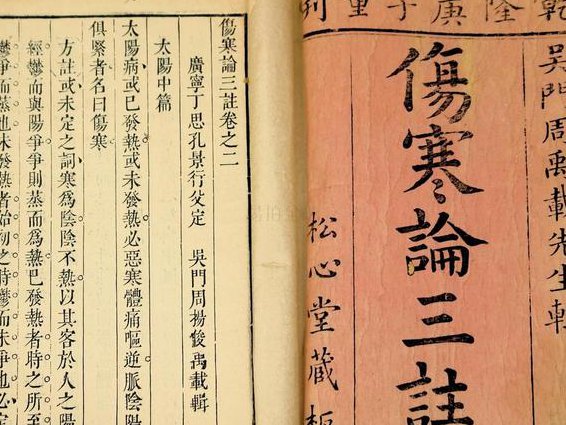 乾隆庚子重刊
吳門周禹載先生輯
傷寒論三註
松心堂藏板
傷寒論三註卷之二
廣寧丁思孔景行父定 吳門周揚俊禹載輯
太陽中篇
太陽病或已發熱或未發熱必惡寒體痛嘔逆脈陰陽
俱緊者名曰傷寒
方註或未定之詞寒爲陰陰不熱以其客於人之陽
經鬱而與陽爭爭則蒸而爲熱已發熱者時之所至
鬱爭而蒸也未發熱者始初之時鬱而未爭也必定